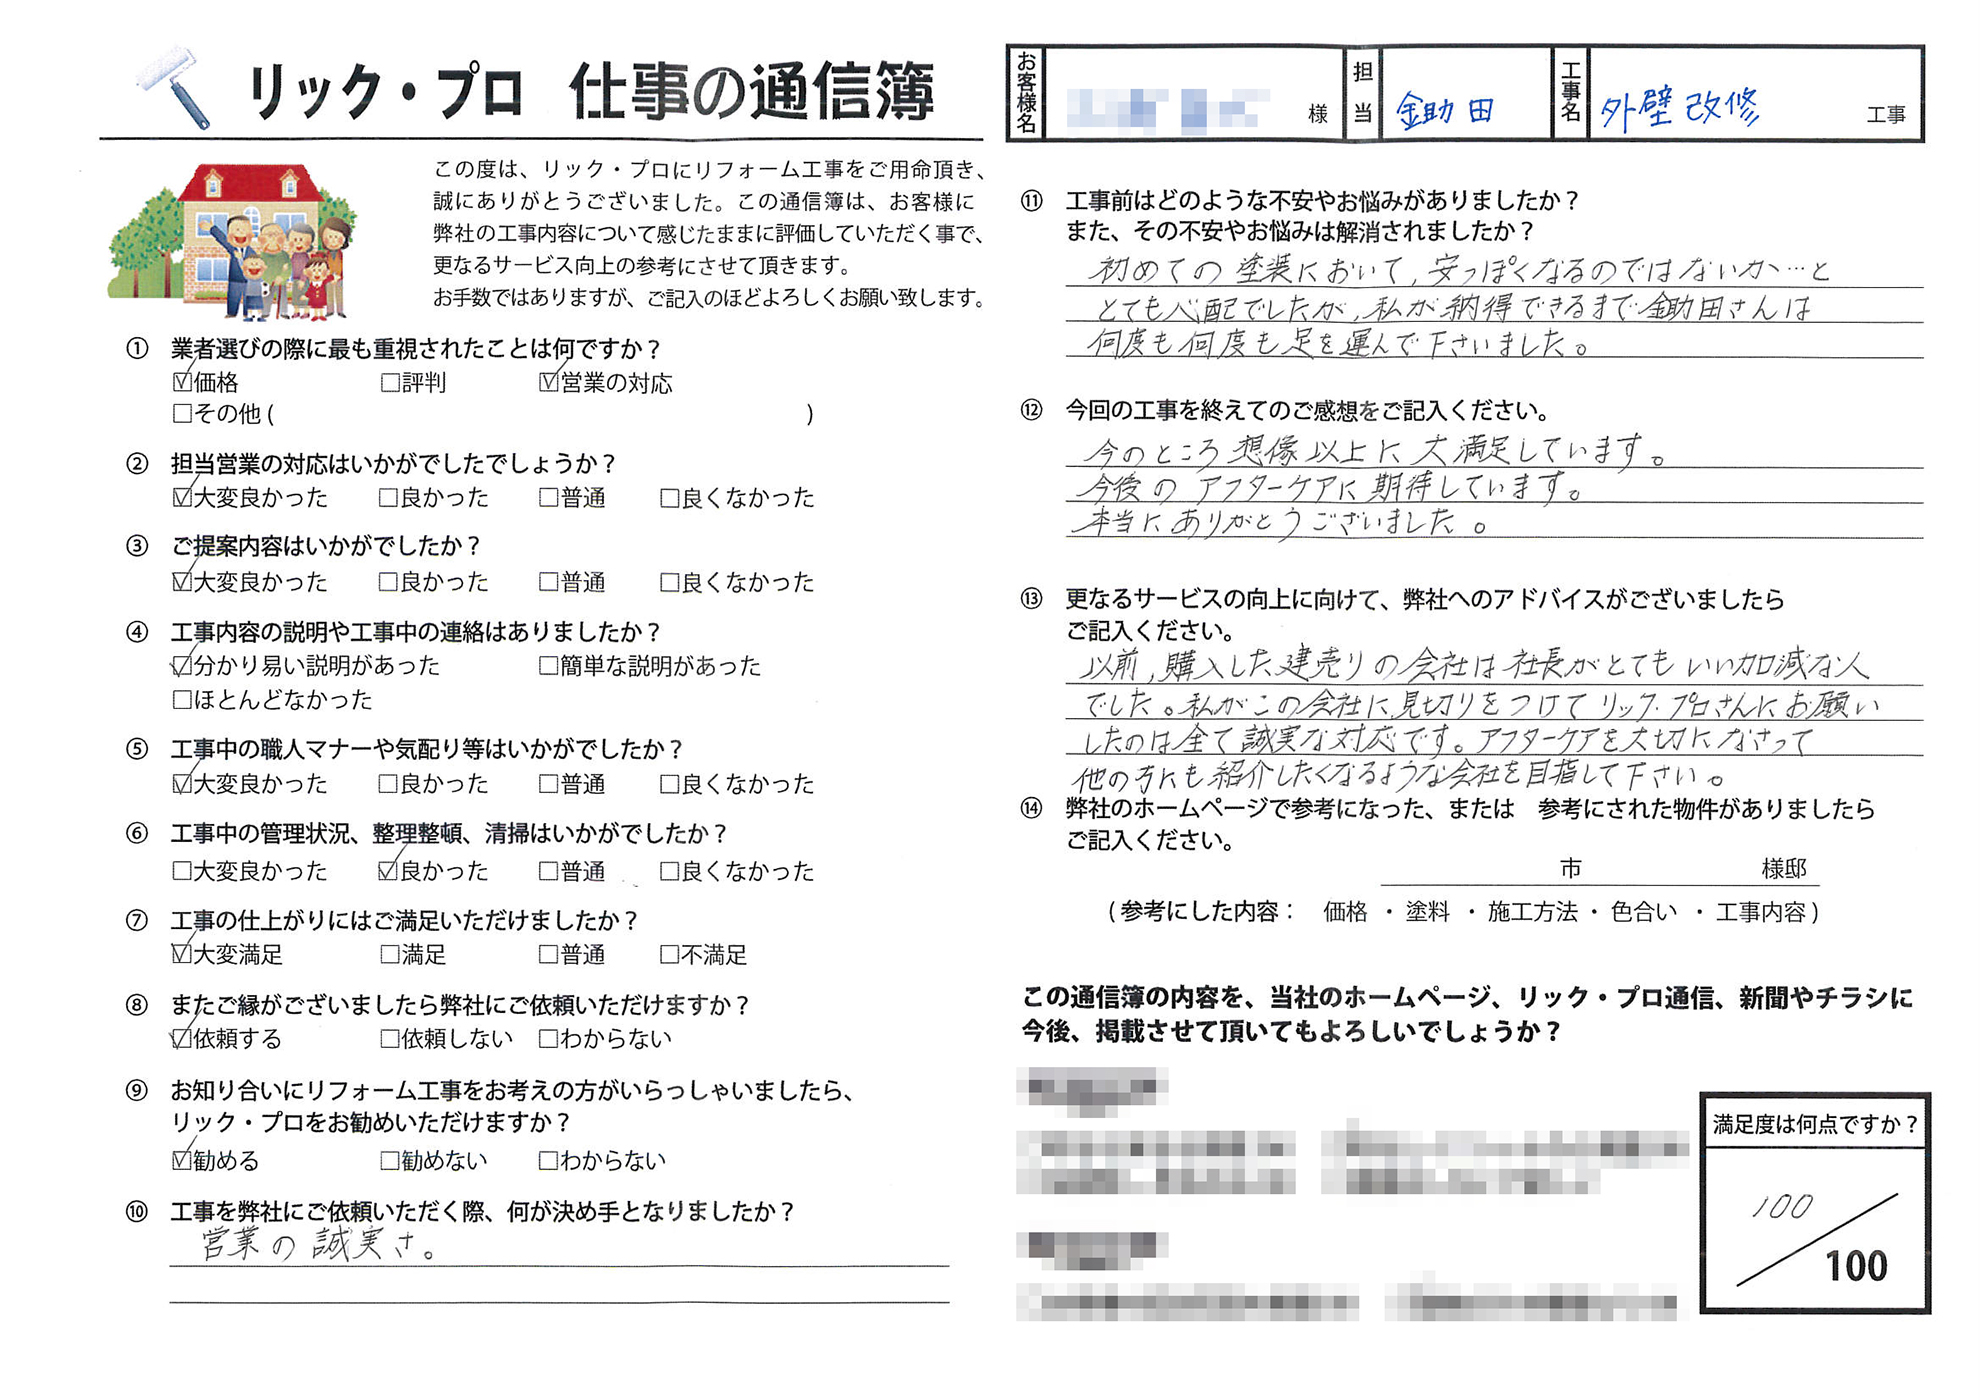 リック・プロ 仕事の通信簿
この度は、リック・プロにリフォーム工事をご用命頂き、
誠にありがとうございました。この通信簿は、お客様に
弊社の工事内容について感じたままに評価していただく事で、
更なるサービス向上の参考にさせて頂きます。
お手数ではありますが、ご記入のほどよろしくお願い致します。
① 業者選びの際に最も重視されたことは何ですか？
☑価格 □評判 ☑営業の対応
□その他 ( )
② 担当営業の対応はいかがでしたでしょうか？
☑大変良かった □良かった □普通 □良くなかった
③ ご提案内容はいかがでしたか？
☑大変良かった □良かった □普通 □良くなかった
④ 工事内容の説明や工事中の連絡はありましたか？
☑分かり易い説明があった □簡単な説明があった
□ほとんどなかった
⑤ 工事中の職人マナーや気配り等はいかがでしたか？
☑大変良かった □良かった □普通 □良くなかった
⑥ 工事中の管理状況、整理整頓、清掃はいかがでしたか？
□大変良かった ☑良かった □普通 □良くなかった
⑦ 工事の仕上がりにはご満足いただけましたか？
☑大変満足 □満足 □普通 □不満足
⑧ またご縁がございましたら弊社にご依頼いただけますか？
☑依頼する □依頼しない □わからない
⑨ お知り合いにリフォーム工事をお考えの方がいらっしゃいましたら、
リック・プロをお勧めいただけますか？
☑勧める □勧めない □わからない
⑩ 工事を弊社にご依頼いただく際、何が決め手となりましたか？
営業の誠実さ。
お客様名 様 担当 金助田 工事名 外壁改修 工事
⑪ 工事前はどのような不安やお悩みがありましたか？
また、その不安やお悩みは解消されましたか？
初めての塗装において,安っぽくなるのではないか…と
とても心配でしたが,私が納得できるまで金助田さんは
何度も何度も足を運んで下さいました。
⑫ 今回の工事を終えてのご感想をご記入ください。
今のところ想像以上に大満足しています。
今後のアフターケアに期待しています。
本当にありがとうございました。
⑬ 更なるサービスの向上に向けて、弊社へのアドバイスがございましたら
ご記入ください。
以前,購入した建売りの会社は社長がとてもいい加減な人
でした。私がこの会社に見切りをつけてリック・プロさんにお願い
したのは全て誠実な対応です。アフターケアを大切になさって
他の方にも紹介したくなるような会社を目指して下さい。
⑭ 弊社のホームページで参考になった、または 参考にされた物件がありましたら
ご記入ください。
市 様邸
( 参考にした内容： 価格 ・ 塗料 ・ 施工方法 ・ 色合い ・ 工事内容 )
この通信簿の内容を、当社のホームページ、リック・プロ通信、新聞やチラシに
今後、掲載させて頂いてもよろしいでしょうか？
満足度は何点ですか？
100
100